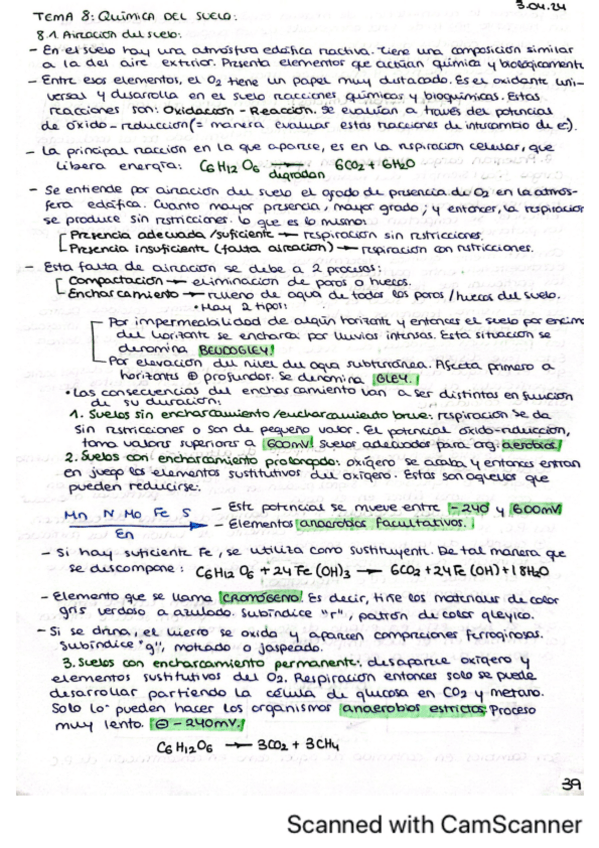 3.04.24
TEMA 8: QUÍMICA DEL SUELO:
8.1. Aireación del suelo:
- En el suelo hay una atmósfera edáfica reactiva. Tiene una composición similar
a la del aire exterior. Presenta elementos que actúan química y biológicamente
- Entre esos elementos, el O2 tiene un papel muy destacado. Es el oxidante uni-
versal y desarrolla en el suelo reacciones químicas y bioquímicas. Estas
reacciones son: Oxidación - Reacción. Se evalúan a través del potencial
de óxido-reducción (= manera evaluar estas reacciones de intercambio de e-).
- La principal reacción en la que aparece, es en la respiración celular, que
libera energía: C6H12O6 → 6CO2 + 6H2O
digradan
- Se entiende por aireación del suelo el grado de presencia de O2 en la atmós-
fera edáfica. Cuanto mayor presencia, mayor grado; y entonces, la respiración
se produce sin restricciones. Lo que es lo mismo:
Presencia adecuada/suficiente → respiración sin restricciones.
Presencia insuficiente (falta aireación) → respiración con restricciones.
- Esta falta de aireación se debe a 2 procesos:
Compactación → eliminación de poros o huecos.
Encharcamiento → relleno de agua de todos los poros/huecos del suelo.
• Hay 2 tipos:
Por impermeabilidad de algún horizonte y entonces el suelo por encima
del horizonte se encharca por lluvias intensas. Esta situación se
denomina PSEUDOGLEY!
Por elevación del nivel del agua subterránea. Afecta primero a
horizontes ⊕ profundos. Se denomina GLEY!
• Las consecuencias del encharcamiento van a ser distintas en función
de su duración:
1. Suelos sin encharcamiento/encharcamiento breve: respiración se da
sin restricciones o son de pequeño valor. El potencial óxido-reducción,
toma valores superiores a 600mV! Suelos adecuados para org. aerobios!
2. Suelos con encharcamiento prolongado: oxígeno se acaba y entonces entran
en juego los elementos sustitutivos del oxígeno. Estos son aquellos que
pueden reducirse:
Mn N Mo Fe S
En
- Este potencial se mueve entre -240 y 600mV
- Elementos anaerobios facultativos.
- Si hay suficiente Fe, se utiliza como sustituyente. De tal manera que
se descompone: C6H12O6 + 24Fe(OH)3 → 6CO2 + 24Fe(OH) + 18H2O
- Elemento que se llama CROMÓGENO! Es decir, tiñe los materiales de color
gris verdoso a azulado. Subíndice "r", patrón de color gleyico.
- Si se drena, el hierro se oxida y aparecen concreciones ferruginosas.
Subíndice "g", moteado o jaspeado.
3. Suelos con encharcamiento permanente: desaparece oxígeno y
elementos sustitutivos del O2. Respiración entonces solo se puede
desarrollar partiendo la célula de glucosa en CO2 y metano.
Solo lo pueden hacer los organismos anaerobios estrictos: Proceso
muy lento. ⊖ -240mV!
C6H12O6 → 3CO2 + 3CH4
39
Scanned with CamScanner